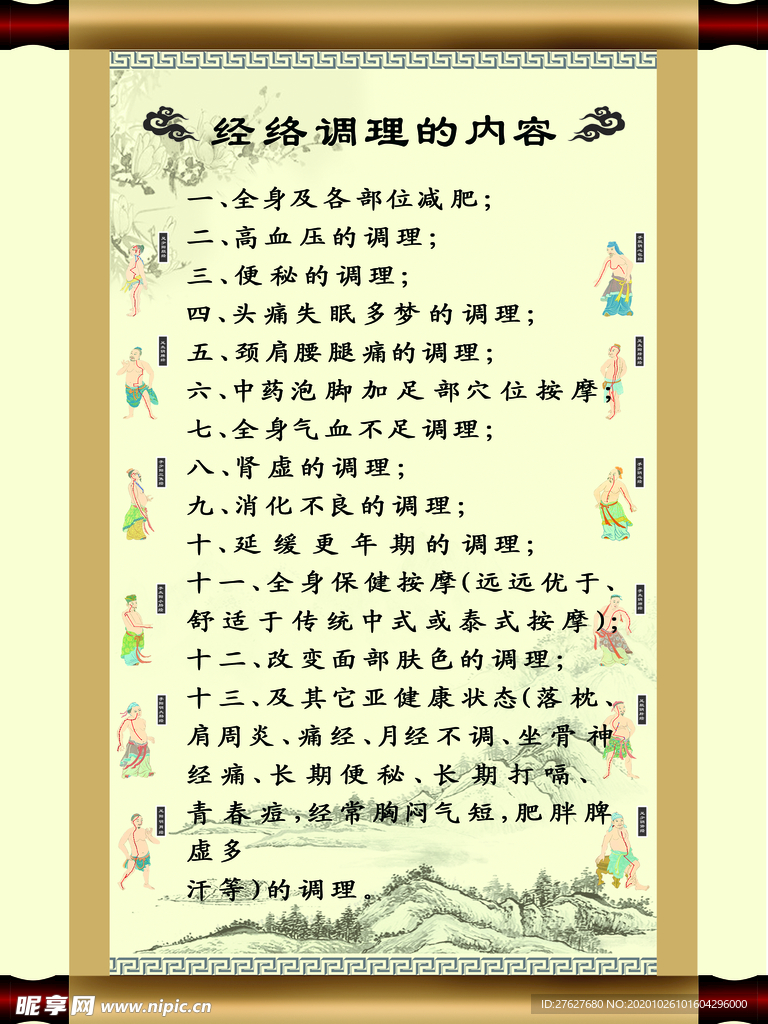 经络调理的内容
一、全身及各部位减肥;
二、高血压的调理;
三、便秘的调理;
四、头痛失眠多梦的调理;
五、颈肩腰腿痛的调理;
六、中药泡脚加足部穴位按摩;
七、全身气血不足调理;
八、肾虚的调理;
九、消化不良的调理;
十、延缓更年期的调理;
十一、全身保健按摩(远远优于、
舒适于传统中式或泰式按摩);
十二、改变面部肤色的调理;
十三、及其它亚健康状态(落枕、
肩周炎、痛经、月经不调、坐骨神
经痛、长期便秘、长期打嗝、
青春痘,经常胸闷气短,肥胖脾
虚多
汗等)的调理。
昵享网 www.nipic.cn
ID:27627680 NO:20201026101604296000